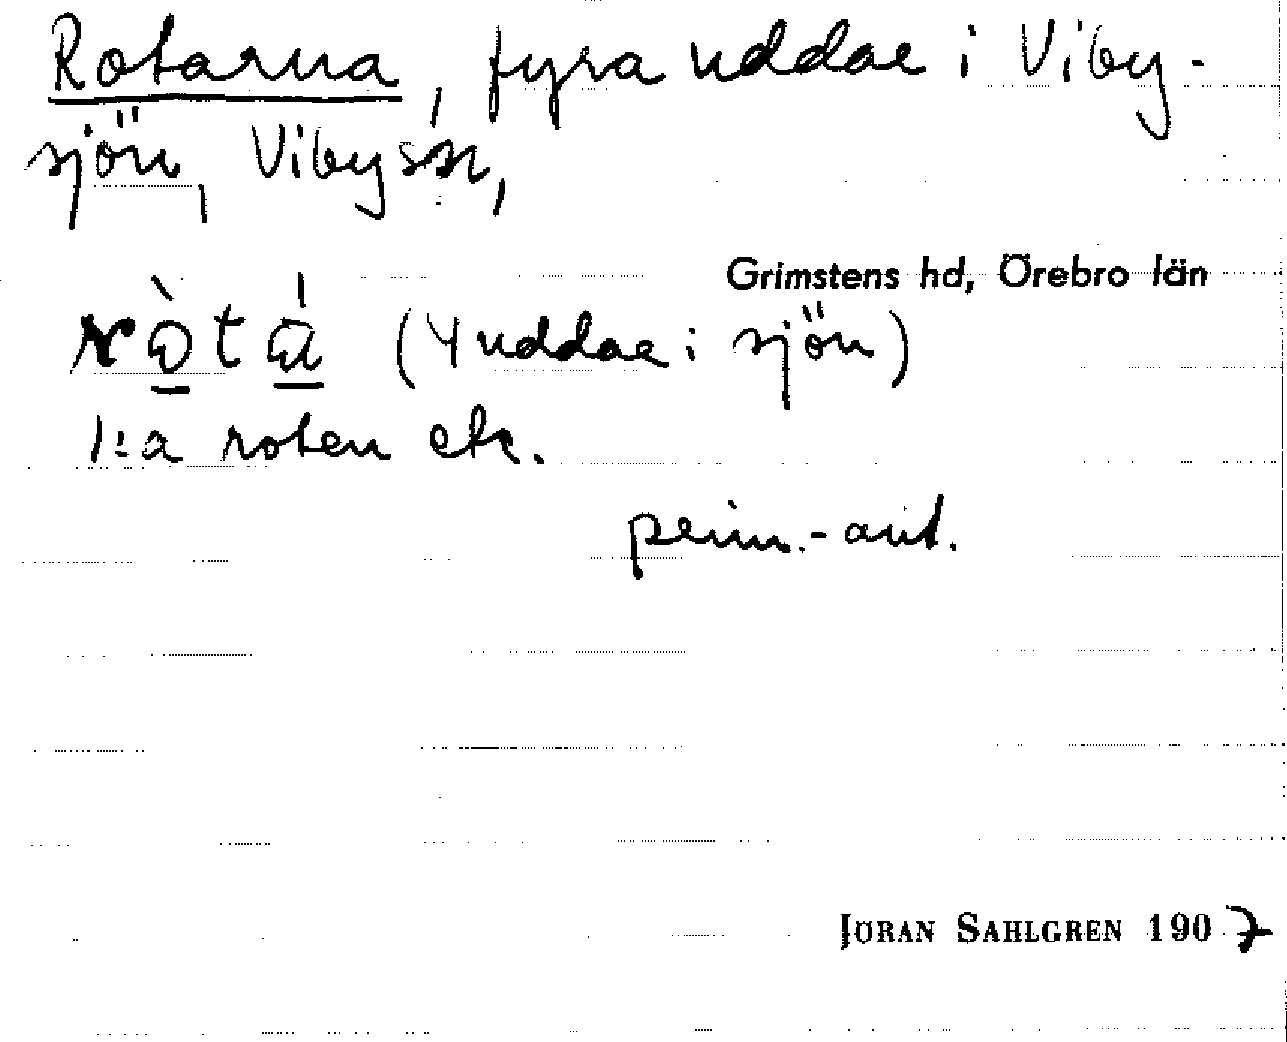 Rotarna, fyra uddar i Viby-
sjön, Viby sn,
Grimstens hd, Örebro län
ròtá (4 uddar i sjön)
1:a roten etc.
prim.-ant.
JÖRAN SAHLGREN 1907